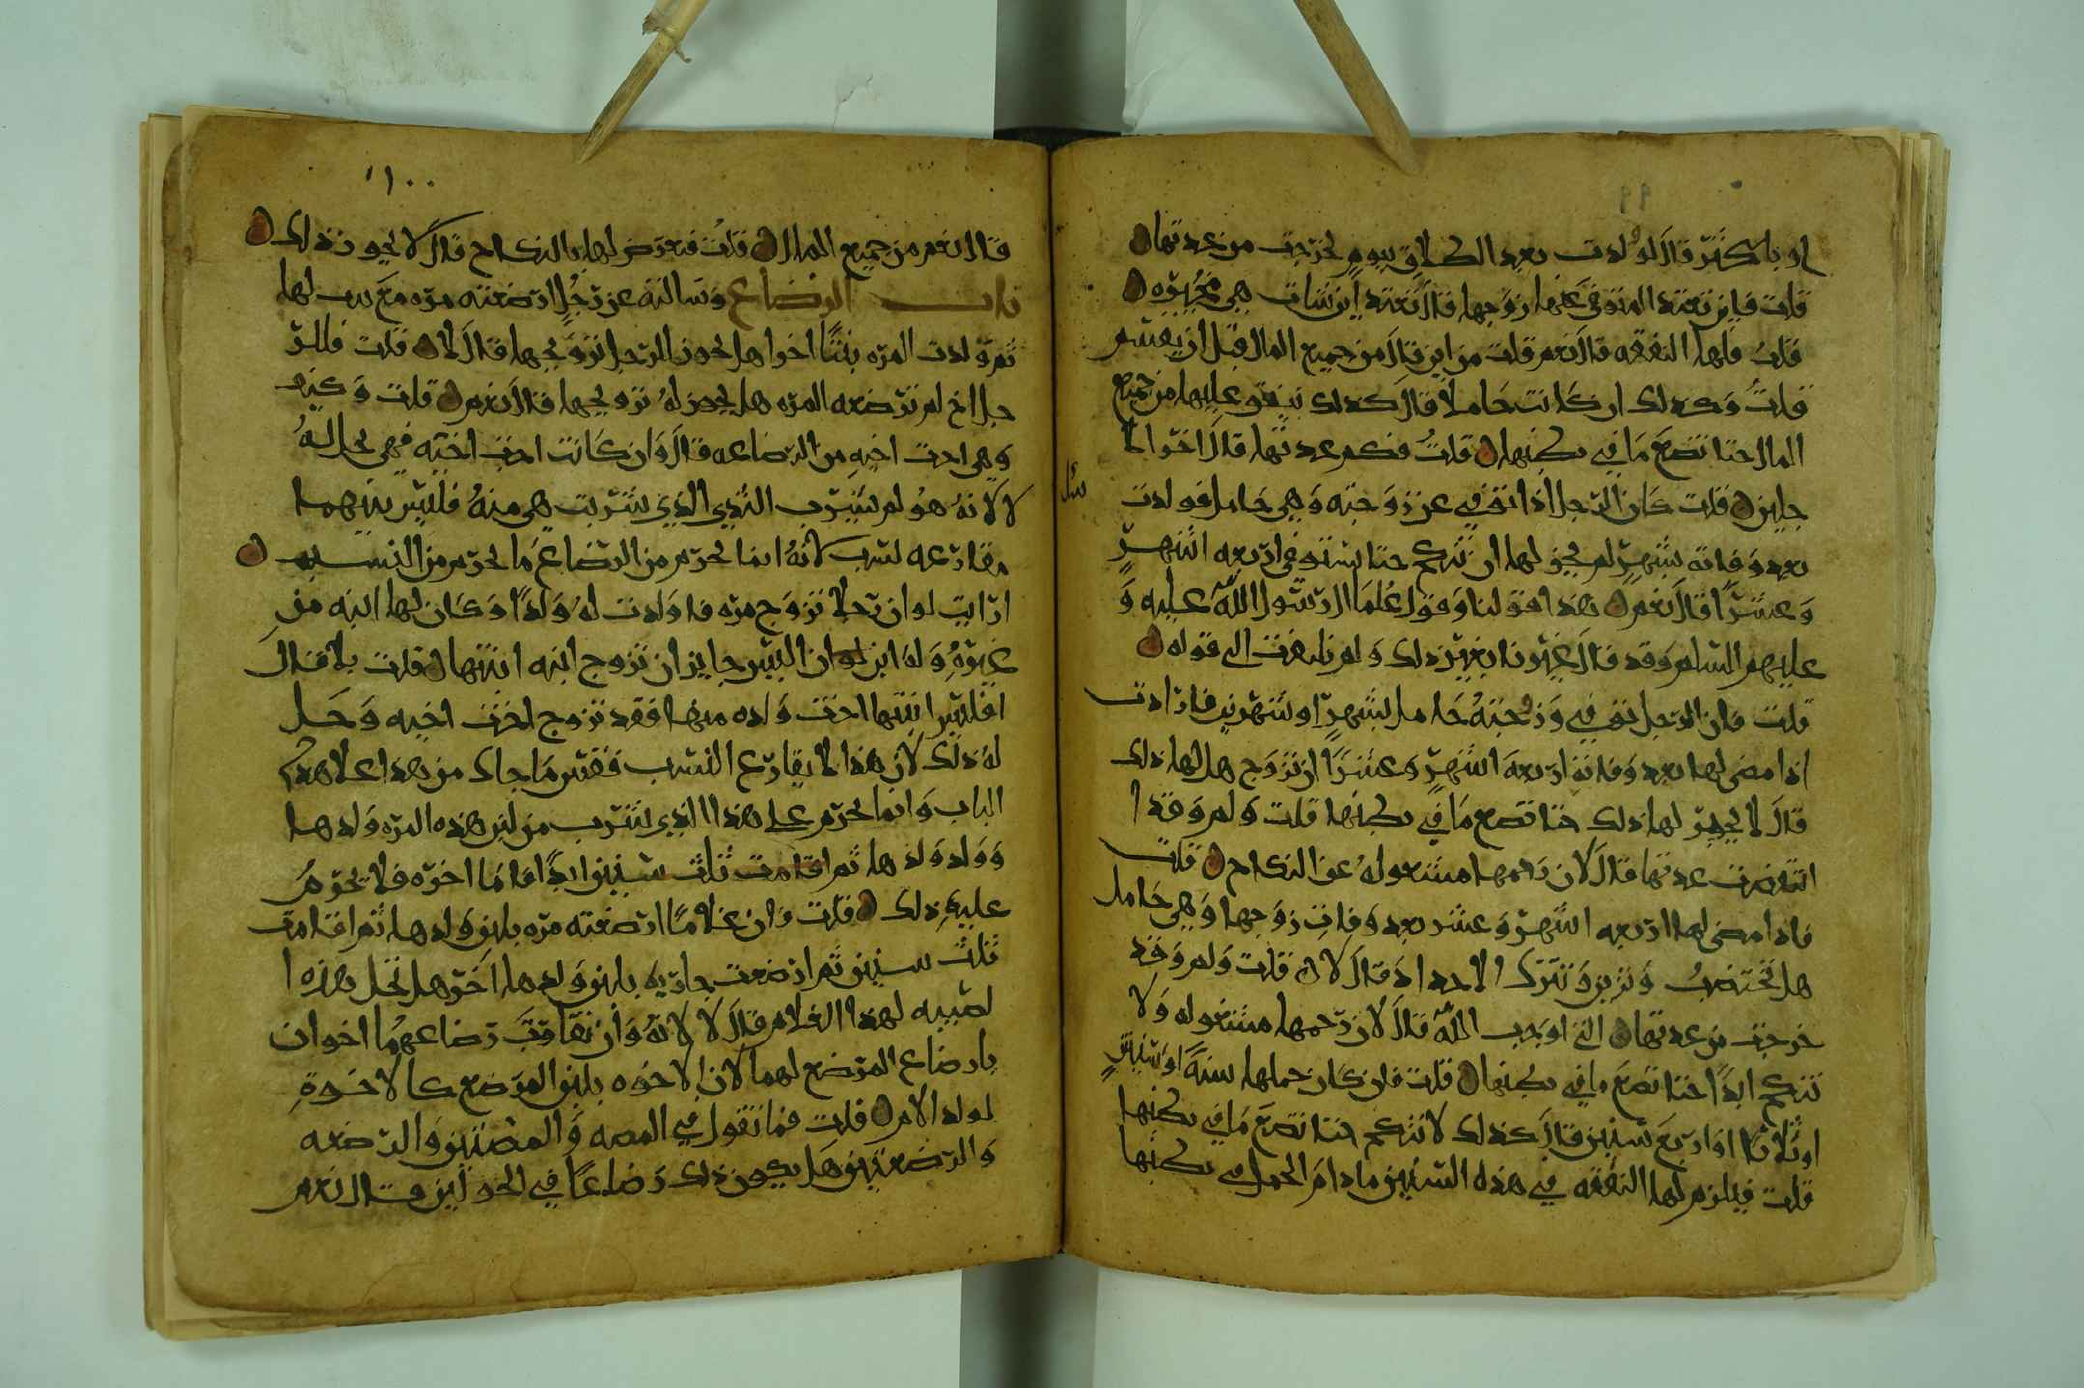 ٩٩
او باكثر قال لو ولدت بعد الطلاق بيوم لخرجت من عدتها
قلت فاين تعتد المتوفى عنها زوجها قال تعتد اين شات هي مخيره
قلت فلها النفقه قال نعم قلت من اين قال من جميع المال قبل ان يقتسم
قلت وكذلك ان كانت حاملا قال كذلك ينفق عليها من جميع
المال حتا تضع ما في بطنها قلت فكم عدتها قال اخر الا
جلين قلت كان الرجل اذا توفي عن زوجته وهي حامل فولدت
بعد وفاته بشهر لم يجز لها ان تنكح حتا تستوفي اربعه اشهر
وعشرا قال نعم هذا قولنا وقول علما ال رسول الله عليه و
عليهم السلم وقد قال غيرنا بغير ذلك ولم نلتفت الى قوله
قلت فان الرجل توفي وزوجته حامل بشهر او شهرين فارادت
اذا مضى لها بعد وفاته اربعه اشهر وعشرا ان تزوج هل لها ذلك
قال لا يجوز لها ذلك حتا تضع ما في بطنها قلت ولم وقد ا
انقضت عدتها قال لان رحمها مشغوله عن النكاح قلت
فاذا مضى لها اربعه اشهر وعشر بعد وفات زوجها وهي حامل
هل تختضب وتزين وتترك الاحداد قال لا قلت ولم وقد
خرجت من عدتها التي اوجب الله قال لان رحمها مشغوله ولا
تنكح ابدا حتا تضع ما في بطنها قلت فان كان حملها سنة او سنتين
او ثلاثا او اربع سنين قال كذلك لا تنكح حتا تضع ما في بطنها
قلت فيلزم لها النفقه في هذه السنين ما دام الحمل في بطنها
١٠٠
قال نعم من جميع المال قلت فتعرض لها بالنكاح قال لا يجوز ذلك
باب الرضاع وسالته عن رجل ارضعته مره مع بنت لها
ثم ولدت المره بنتا اخرا هل يجوز للرجل تزويجها قال لا قلت فللر
جل اخ لم ترضعه المره هل يجوز له تزويجها قال نعم قلت وكيف
وهي اخت اخيه من الرضاعه قال وان كانت اخت اخيه فهي تحل له
لانه هو لم يشرب الثدي الذي شربت هي منه فليس بينهما
مقارعه نسب لانه انما يحرم من الرضاع ما يحرم من النسب
ارايت لو ان رجلا تزوج مره فاولدت له ولدا وكان لها ابنه من
غيره وله ابن اليس جايز ان تزوج ابنه ابنتها قلت بلا قال
افليس ابنتها اخت ولده منها فقد تزوج اخت اخيه وحل
له ذلك لان هذا لا يقارع النسب فقس ما جاك من هذا على هذا
الباب وانما يحرم على هذا الذي شرب من لبن هذه المره ولدها
وولد ولدها ثم اقامت ثلث سنين ابدا فاما اخوه فلا يحرم
عليه ذلك قلت فان غلاما ارضعته مره بلبن ولدها ثم اقامت
ثلث سنين ثم ارضعت جاريه بلبن ولدها اخر هل تحل هذه ا
لصبيه لهذا الغلام قال لا لانه وان تفاوت رضاعهما اخوان
بارضاع المرضع لهما لان الاخوه بلبن المرضع كالاخوة
لولد الام قلت فما تقول في المصه والمصتين والرضعه
والرضعتين هل يكون ذلك رضاعا في الحولين قال نعم